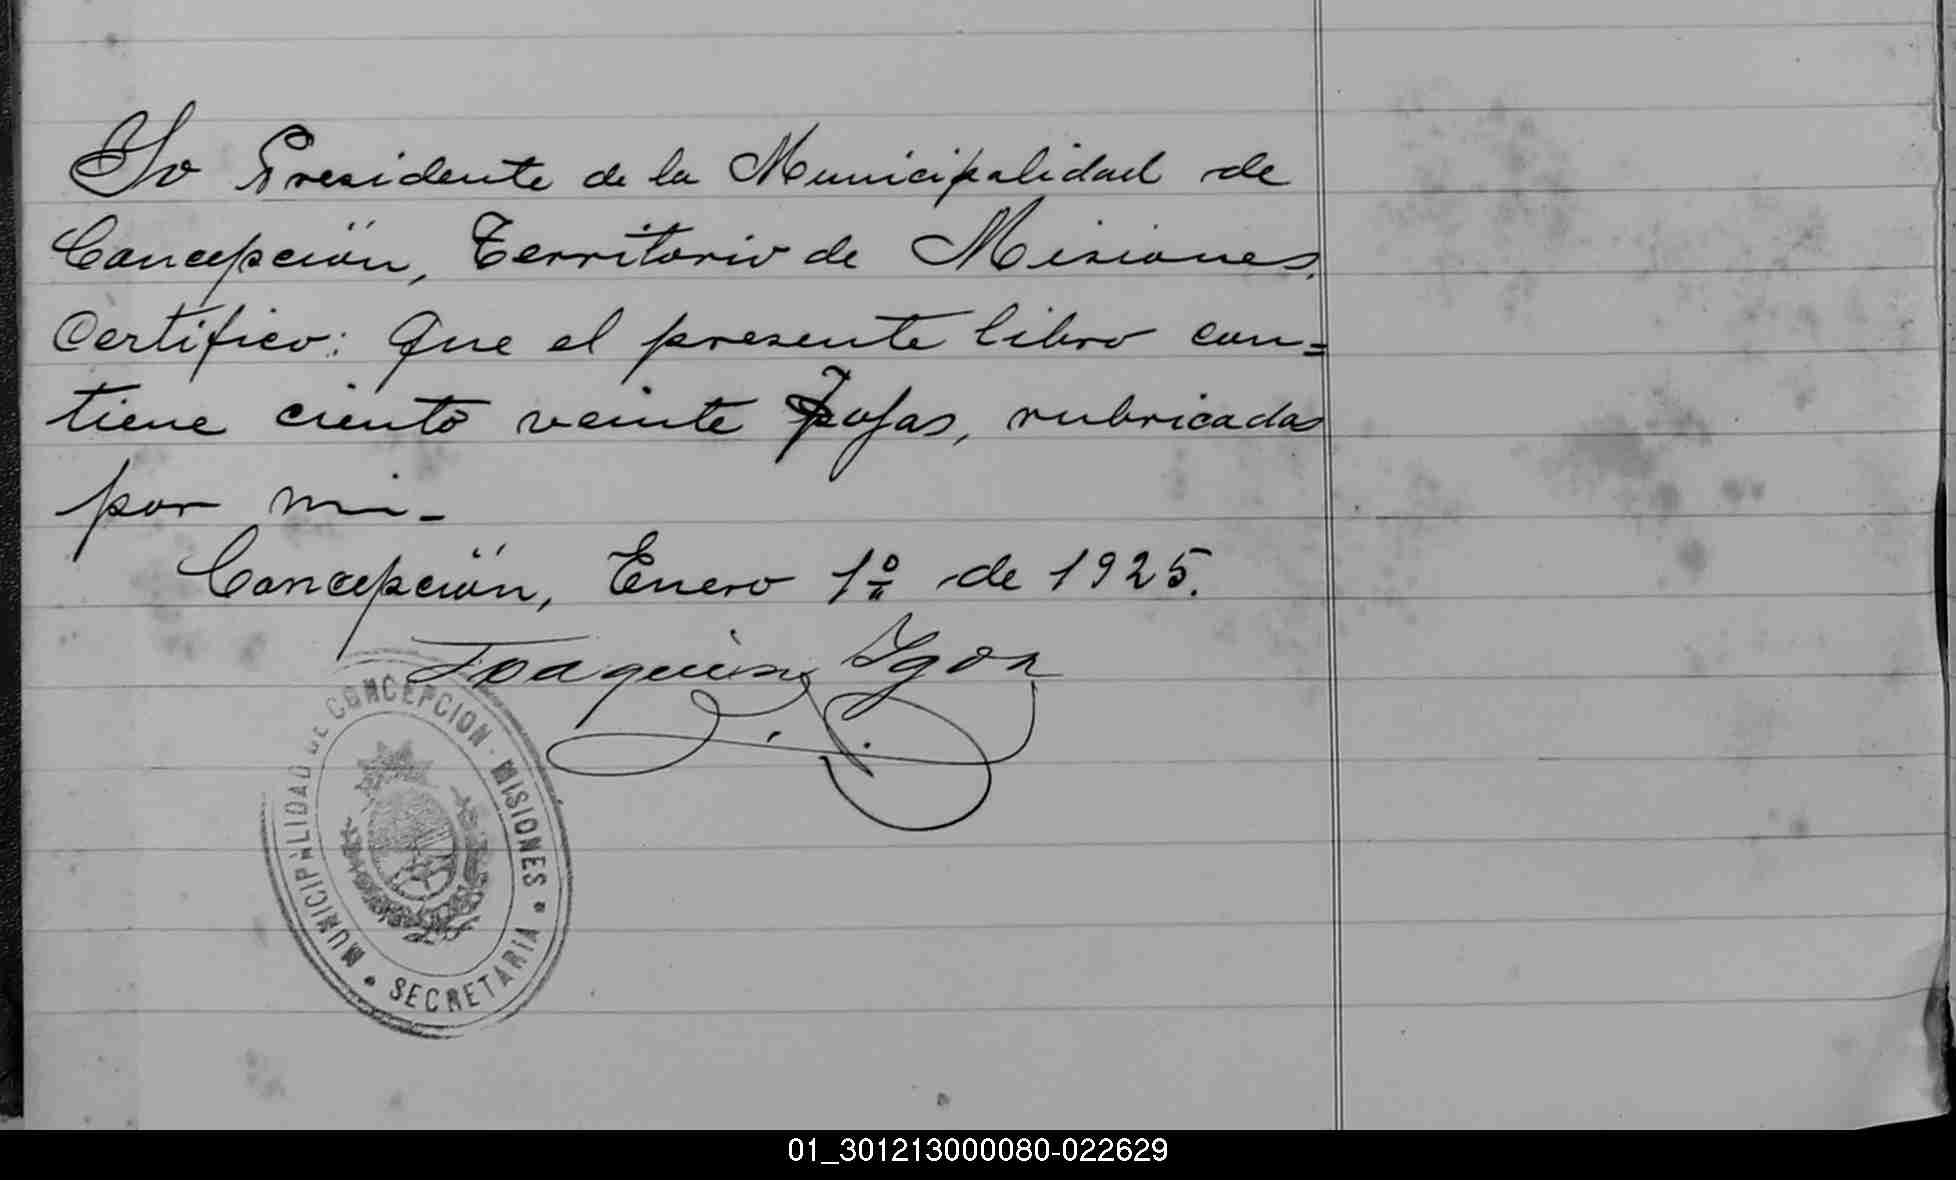 Yo Presidente de la Municipalidad de
Concepción, Territorio de Misiones,
Certifico: Que el presente libro con=
tiene ciento veinte fojas, rubricadas
por mi_
Concepción, Enero 1º de 1925.
Joaquin Ygoa
MUNICIPALIDAD DE CONCEPCION · MISIONES •
• SECRETARIA •
01_301213000080-022629